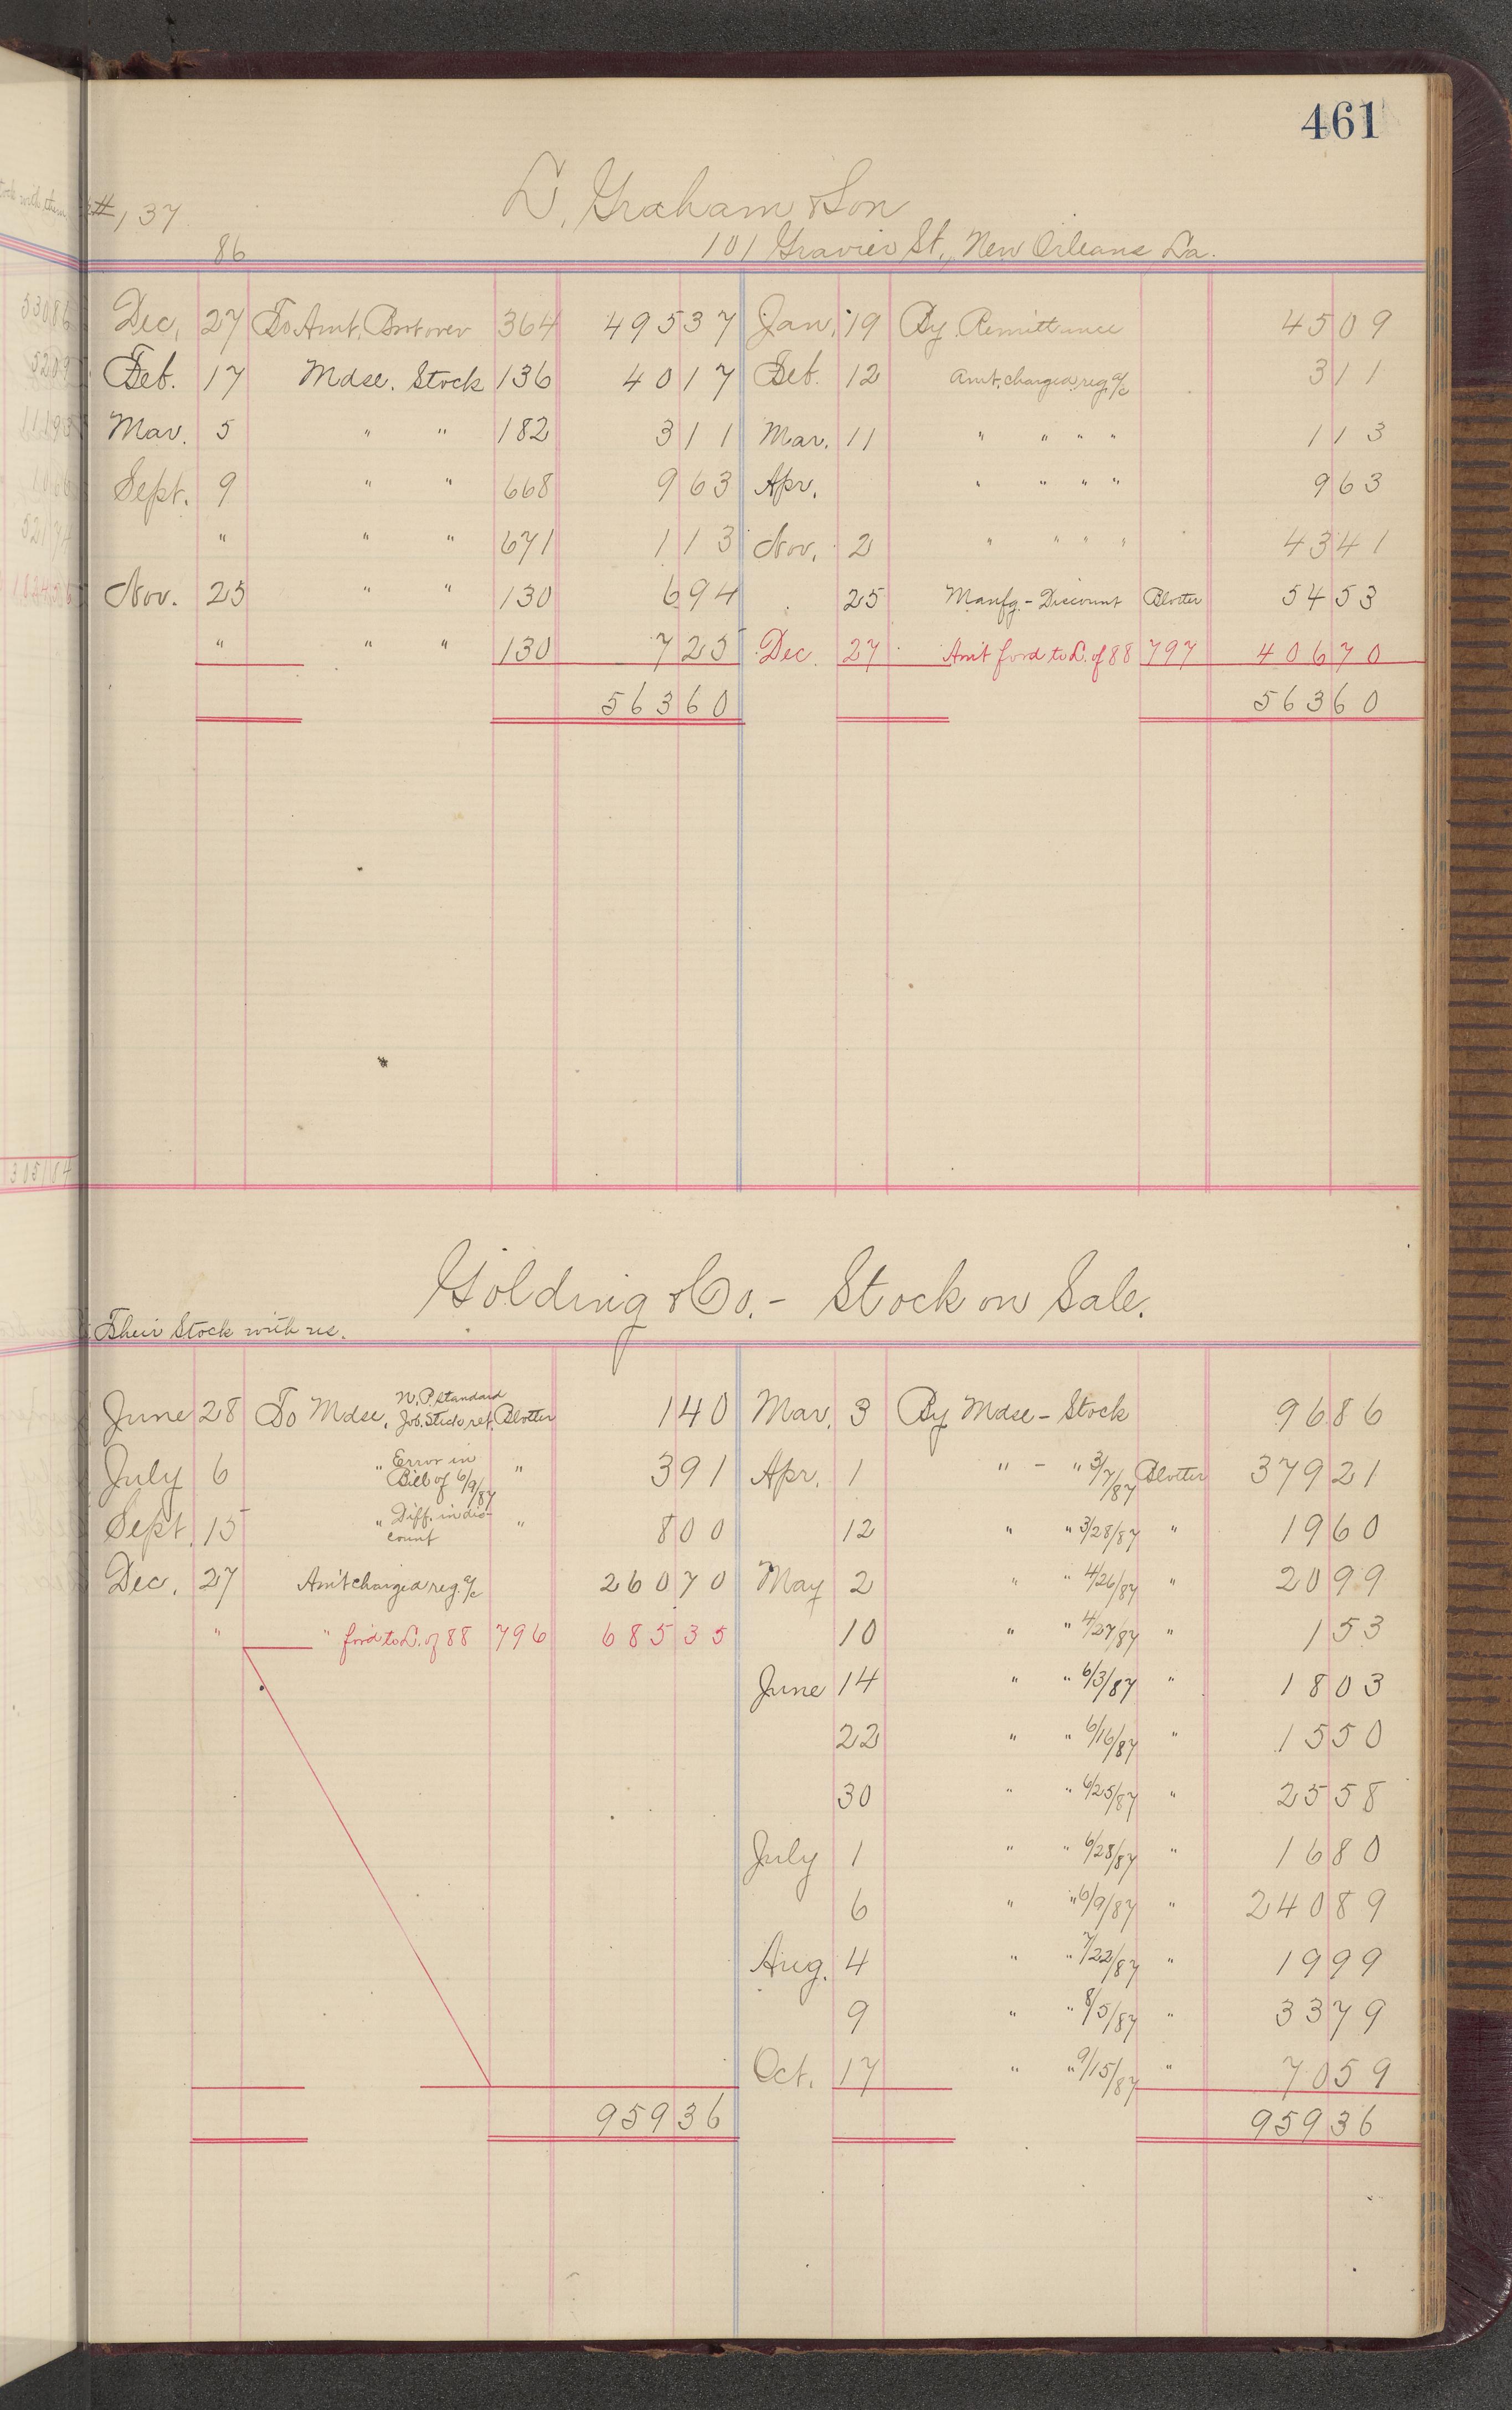 461
#137
L. Graham & Son
86
101 Gravier St., New Orleans, La.
Dec. 27 To Amt. Brot over 364 495 37 Jan. 19 By Remittance 45 09
Feb. 17 Mdse. Stock 136 40 17 Feb. 12 Amt. charged reg. a/c 3 11
Mar. 5 " " 182 3 11 Mar. 11 " " " " 1 13
Sept. 9 " " 668 9 63 Apr. " " " " 9 63
" " " 671 1 13 Nov. 2 " " " " 43 41
Nov. 25 " " 130 6 94 25 Manfg - Discount Blotter 54 53
" " " 130 7 25 Dec. 27 Am't ford to L. of 88 797 406 70
563 60 563 60
Golding & Co. - Stock on Sale.
Their Stock with us.
June 28 To Mdse, N.P. Standard Job. Stick ret. Blotter 1 40 Mar. 3 By Mdse - Stock 96 86
July 6 " Error in Bill of 6/9/87 " 3 91 Apr. 1 " - " 3/7/87 Blotter 379 21
Sept. 15 " Diff. in dis-count " 8 00 12 " " 3/28/87 " 19 60
Dec. 27 Am't charged reg. a/c 260 70 May 2 " " 4/26/87 " 20 99
" " for'd to L. of 88 796 685 35 10 " " 4/27/87 " 1 53
June 14 " " 6/3/87 " 18 03
22 " " 6/16/87 " 15 50
30 " " 6/25/87 " 25 58
July 1 " " 6/28/87 " 16 80
6 " " 6/9/87 " 240 89
Aug. 4 " " 7/22/87 " 19 99
9 " " 8/5/87 " 33 79
Oct. 17 " " 9/15/87 " 70 59
959 36 959 36